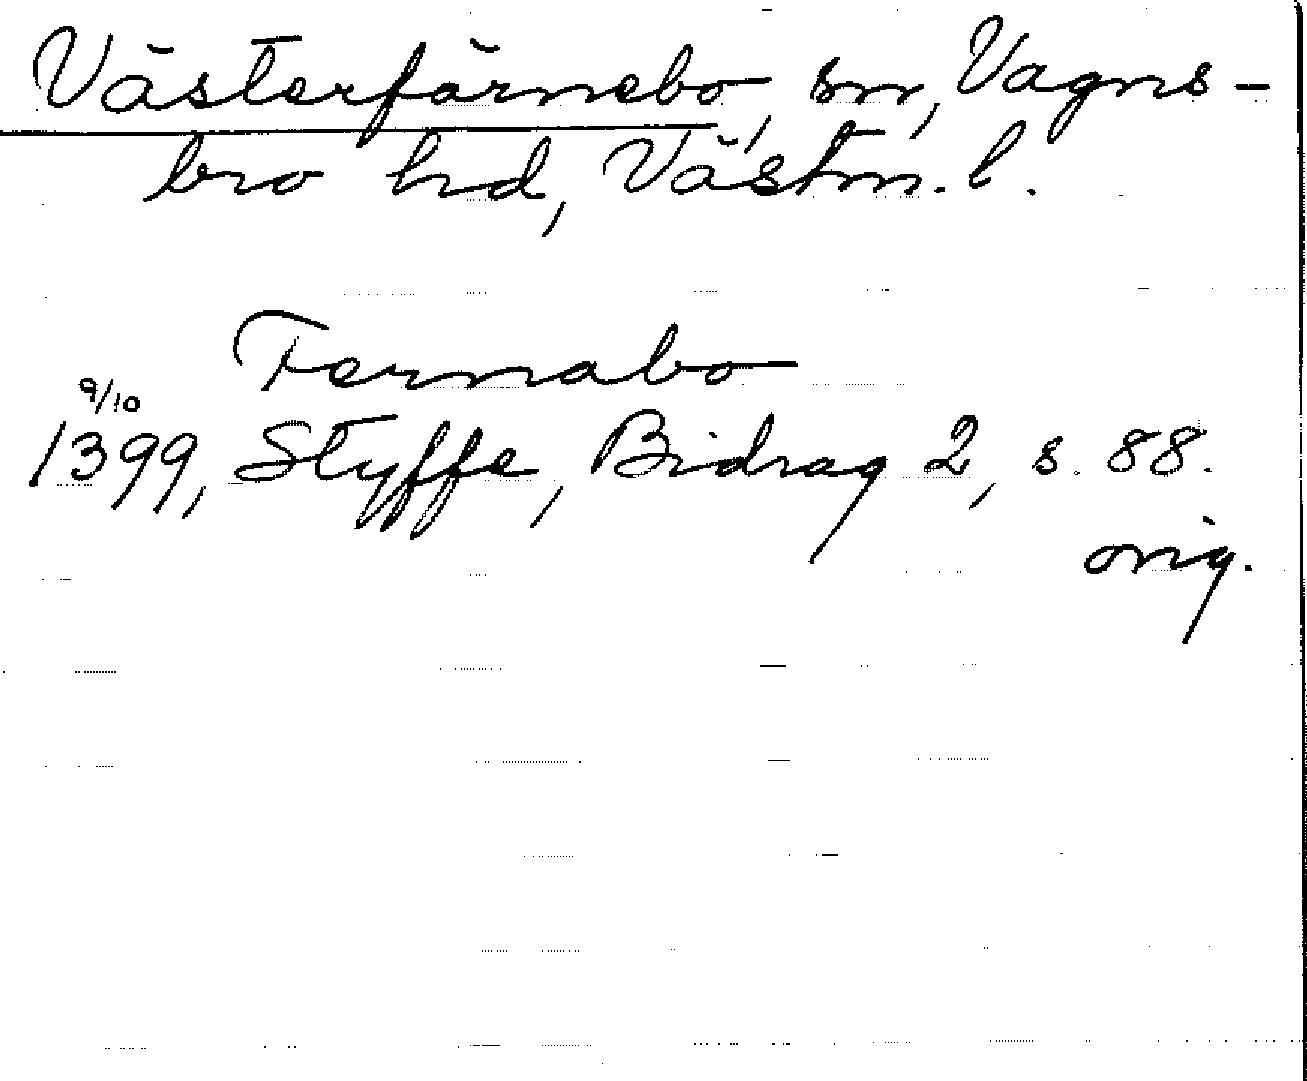 Västerfärnebo, sn, Vagns-
bro hd, Västm. l.
Fernabo
9/10
1399, Styffe, Bidrag 2, s. 88.
orig.